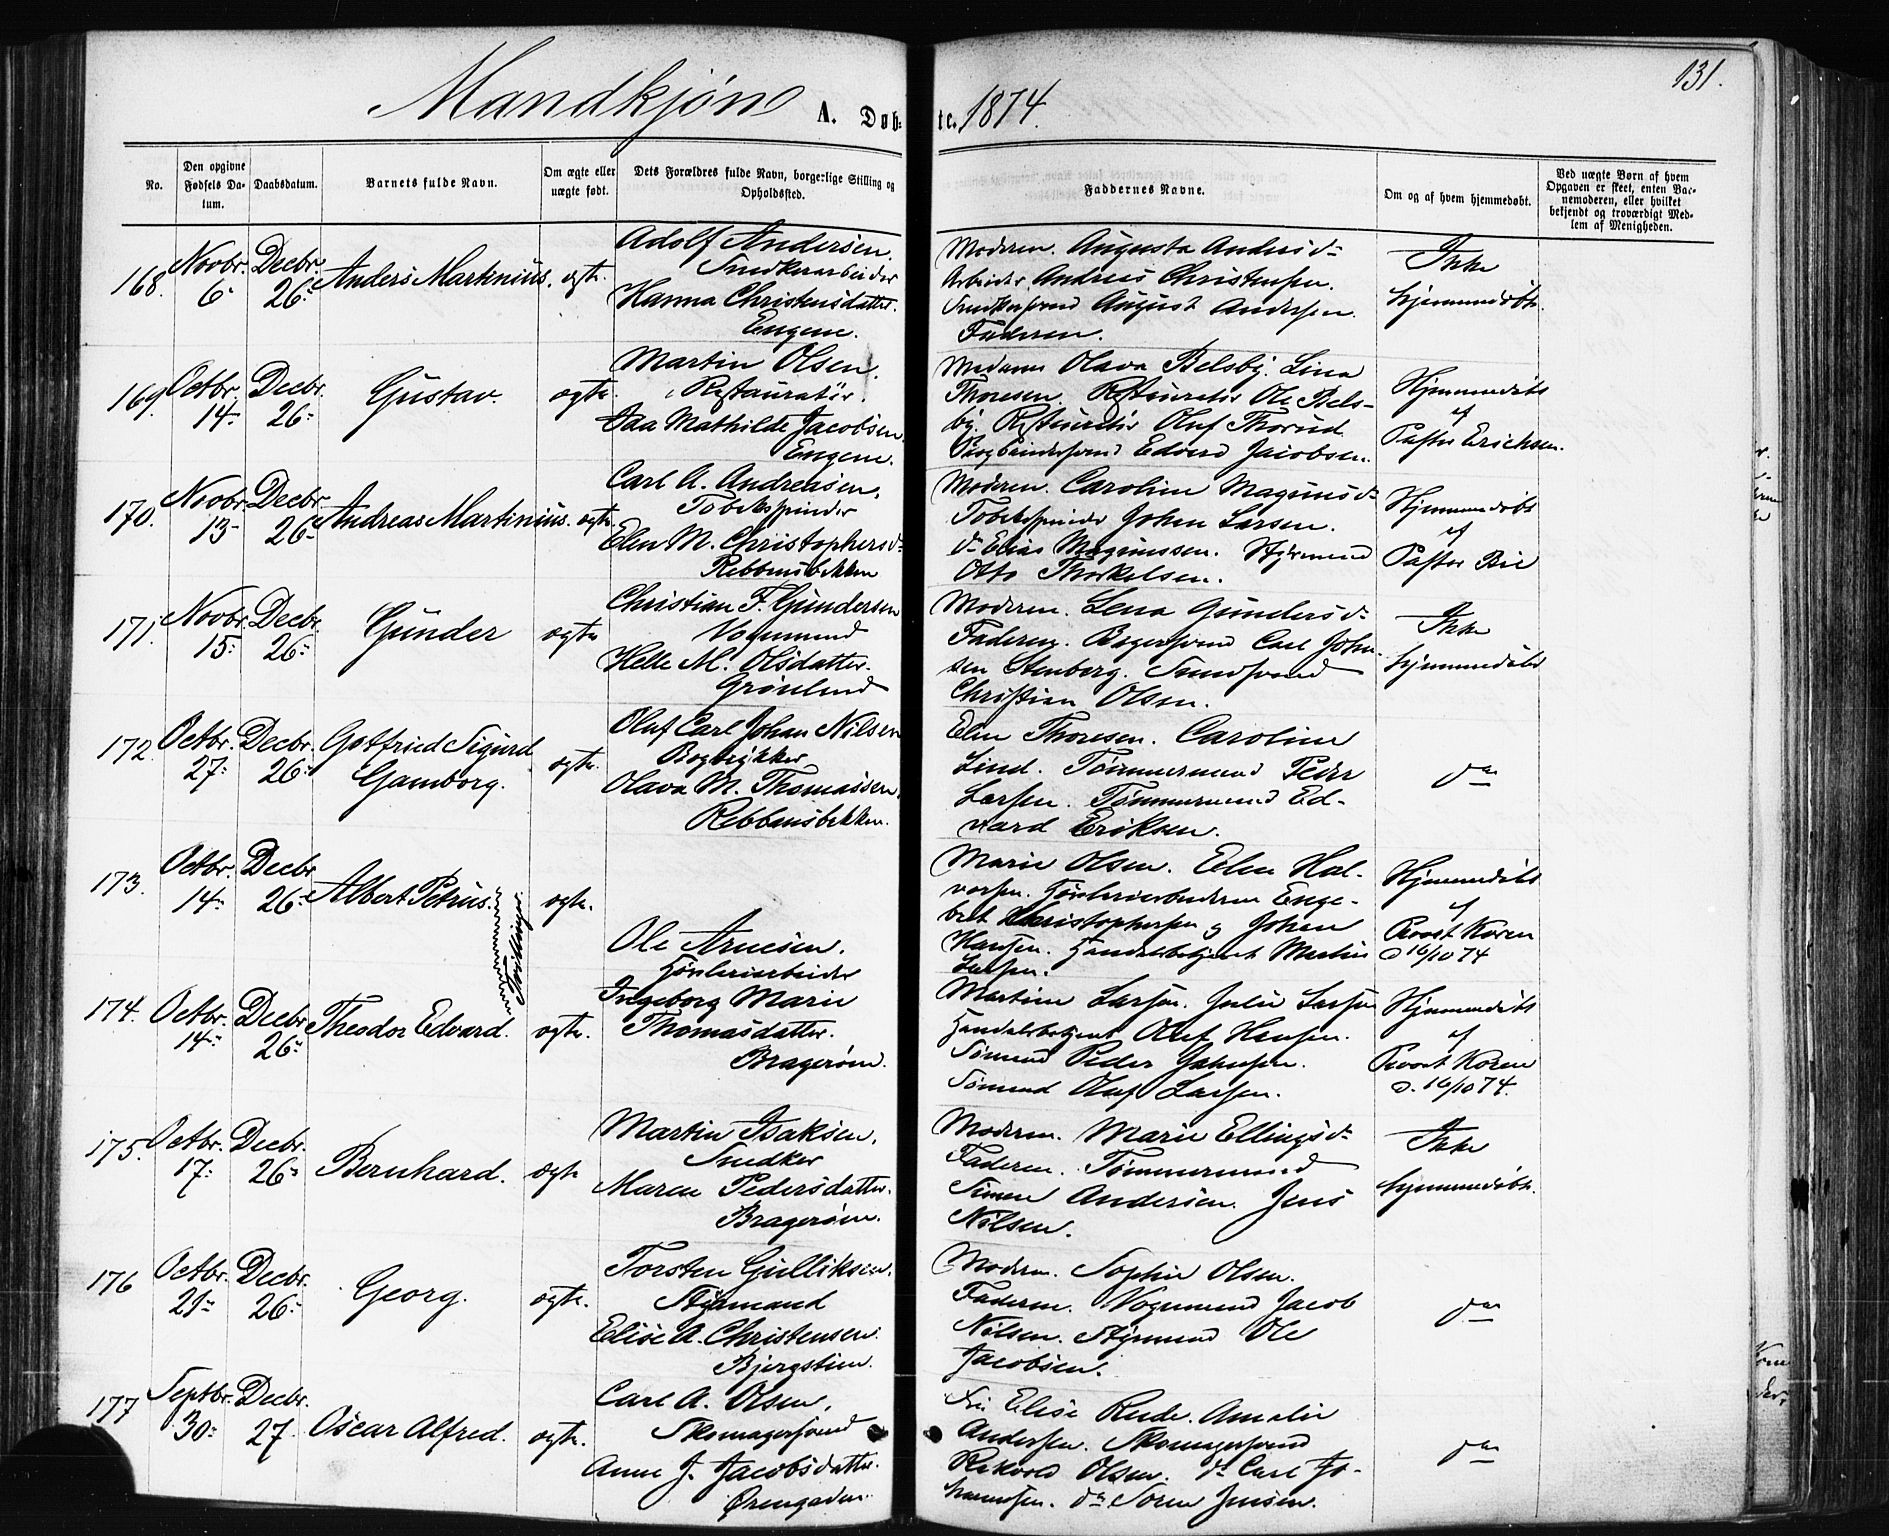 131.
Mandkjøn A. Døb-te. 1874.
No.
Den opgivne Fødsels Da-tum.
Daabsdatum.
Barnets fulde Navn.
Om ægte eller uægte født.
Dets Forældres fulde Navn, borgerlige Stilling og Opholdssted.
Faddernes Navne.
Om og af hvem hjemmedøbt.
Ved uægte Børn af hvem
Opgaven er skeet, enten Bar-
nemoderen, eller hvilket
bekjendt og troværdigt Med-
lem af Menigheden.
168. Novbr. 6 Decbr. 26
Anders Martinius. ægte.
Adolf Andersen.
Snedkerarbeider
Hanna Christensdatter.
Engene.
Moderen. Augusta Andersd-
Arbeider Andreas Christensen.
Snedkersvend August Andersen.
Faderen.
Ikke
hjemmedøbt.
169. Octbr. 14. Decbr. 26
Gustav. ægte.
Martin Olsen.
Restauratør.
Ida Mathilde Jacobsen.
Engene.
Madame Olava Belsby. Lina
Thoresen. Restauratør Ole Bels-
by. Restauratør Oluf Thorud.
Bogbindersvend Edvard Jacobsen.
Hjemmedøbt
af
Pastor Erichsen.
170. Novbr. 13 Decbr. 26
Andreas Martinius. ægte.
Carl A. Andreasen.
Tobakspinder
Elen M. Christophersd-
Rebbensbekken
Moderen. Caroline Magnusd-
Tobakspinder Johan Larsen.
do Elias Magnussen. Styrmand
Otto Thorkelsen.
Hjemmedøbt
af
Pastor Bie
171. Novbr. 15. Decbr. 26
Gunder ægte
Christian F. Gundersen
Vognmand
Helle M. Olsdatter.
Grønland
Moderen. Lena Gundersd-
Faderen. Bagersvend Carl Johan-
sen Stenberg. Smedsvend
Christian Olsen.
Ikke
hjemmedøbt
172. Octbr. 27. Decbr. 26
Gotfried Sigurd
Gamborg. ægte.
Oluf Carl Johan Nilsen
Bogtrykker
Olava M. Thomassen.
Rebbensbekken.
Elen Thoresen. Caroline
Lind. Tømmermand Peder
Larsen. Tømmermand Ed-
vard Eriksen.
do
173. Octbr. 14 Decbr 26
Albert Petrus. ægte.
Tvillinger
Ole Arnesen.
Ingeborg Marie
Thomasdatter.
Bragerøen.
Marie Olsen. Elen Hal-
vorsen. Enge-
bret Christophersen og Johan
Hansen. Handelsbetjent Martin
Larsen.
Hjemmedøbt
af
Provst Koren
d 16/10 74
174. Octbr. 14 Decbr 26
Theodor Edvard. ægte.
Martine Larsen. Julie Larsen
Handelsbetjent Oluf Hansen.
Sømand Peder Johnsen.
Sømand Oluf Larsen.
Hjemmedøbt
af
Provst Koren
d. 16/10 74.
175. Octbr. 17. Decbr. 26
Bernhard. ægte
Martin Isaksen.
Snedker
Maren Pedersdatter.
Bragerøen.
Moderen. Marie Ellingsd-
Faderen. Tømmermand
Simen Andersen. Jens
Nilsen.
Ikke
hjemmedøbt.
176 Octbr. 21 Decbr. 26
Georg. ægte.
Torsten Gulliksen.
Styrmand
Elise A. Christensen.
Bjergstien.
Moderen. Sophie Olsen.
Faderen. Vognmand Jacob
Nilsen. Styrmand Ole
Jacobsen.
do
177 Septbr. 30 Decbr. 27
Oscar Alfred. ægte.
Carl A. Olsen.
Skomagersvend
Anne J. Jacobsdatter.
Ørengaden
Elise Rude. Amalie
Andersen. Skomagersvend
Olsen. do Carl Jo-
hannesen. do Søren Jensen.
do